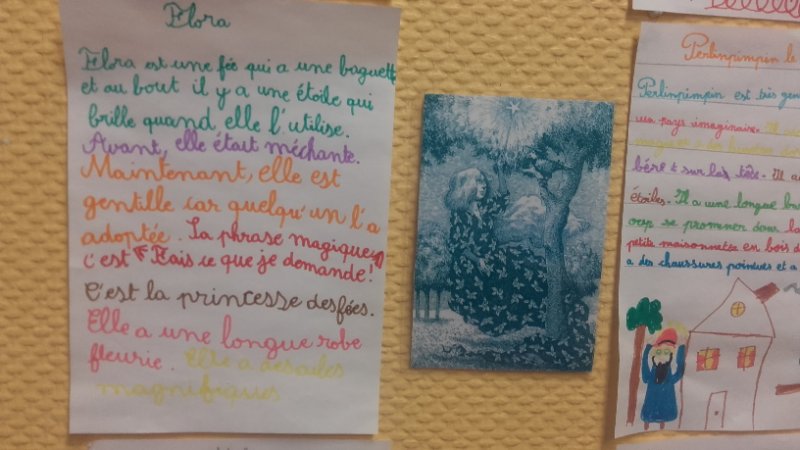 Flora
Flora est une fée qui a une baguett
et au bout il y a une étoile qui
brille quand elle l'utilise.
Avant, elle était méchante.
Maintenant, elle est
gentille car quelqu'un l'a
adoptée. La phrase magique,
c'est "Fais ce que je demande!"
C'est la princesse des fées.
Elle a une longue robe
fleurie. Elle a des ailes
magnifiques
Perlinpimpin le
Perlinpimpin est très gen
un pays imaginaire. Il
béret sur la tête. Il a
étoiles. Il a une longue
se promener dans la
petite maisonnette en bois d
a des chaussures pointues et a